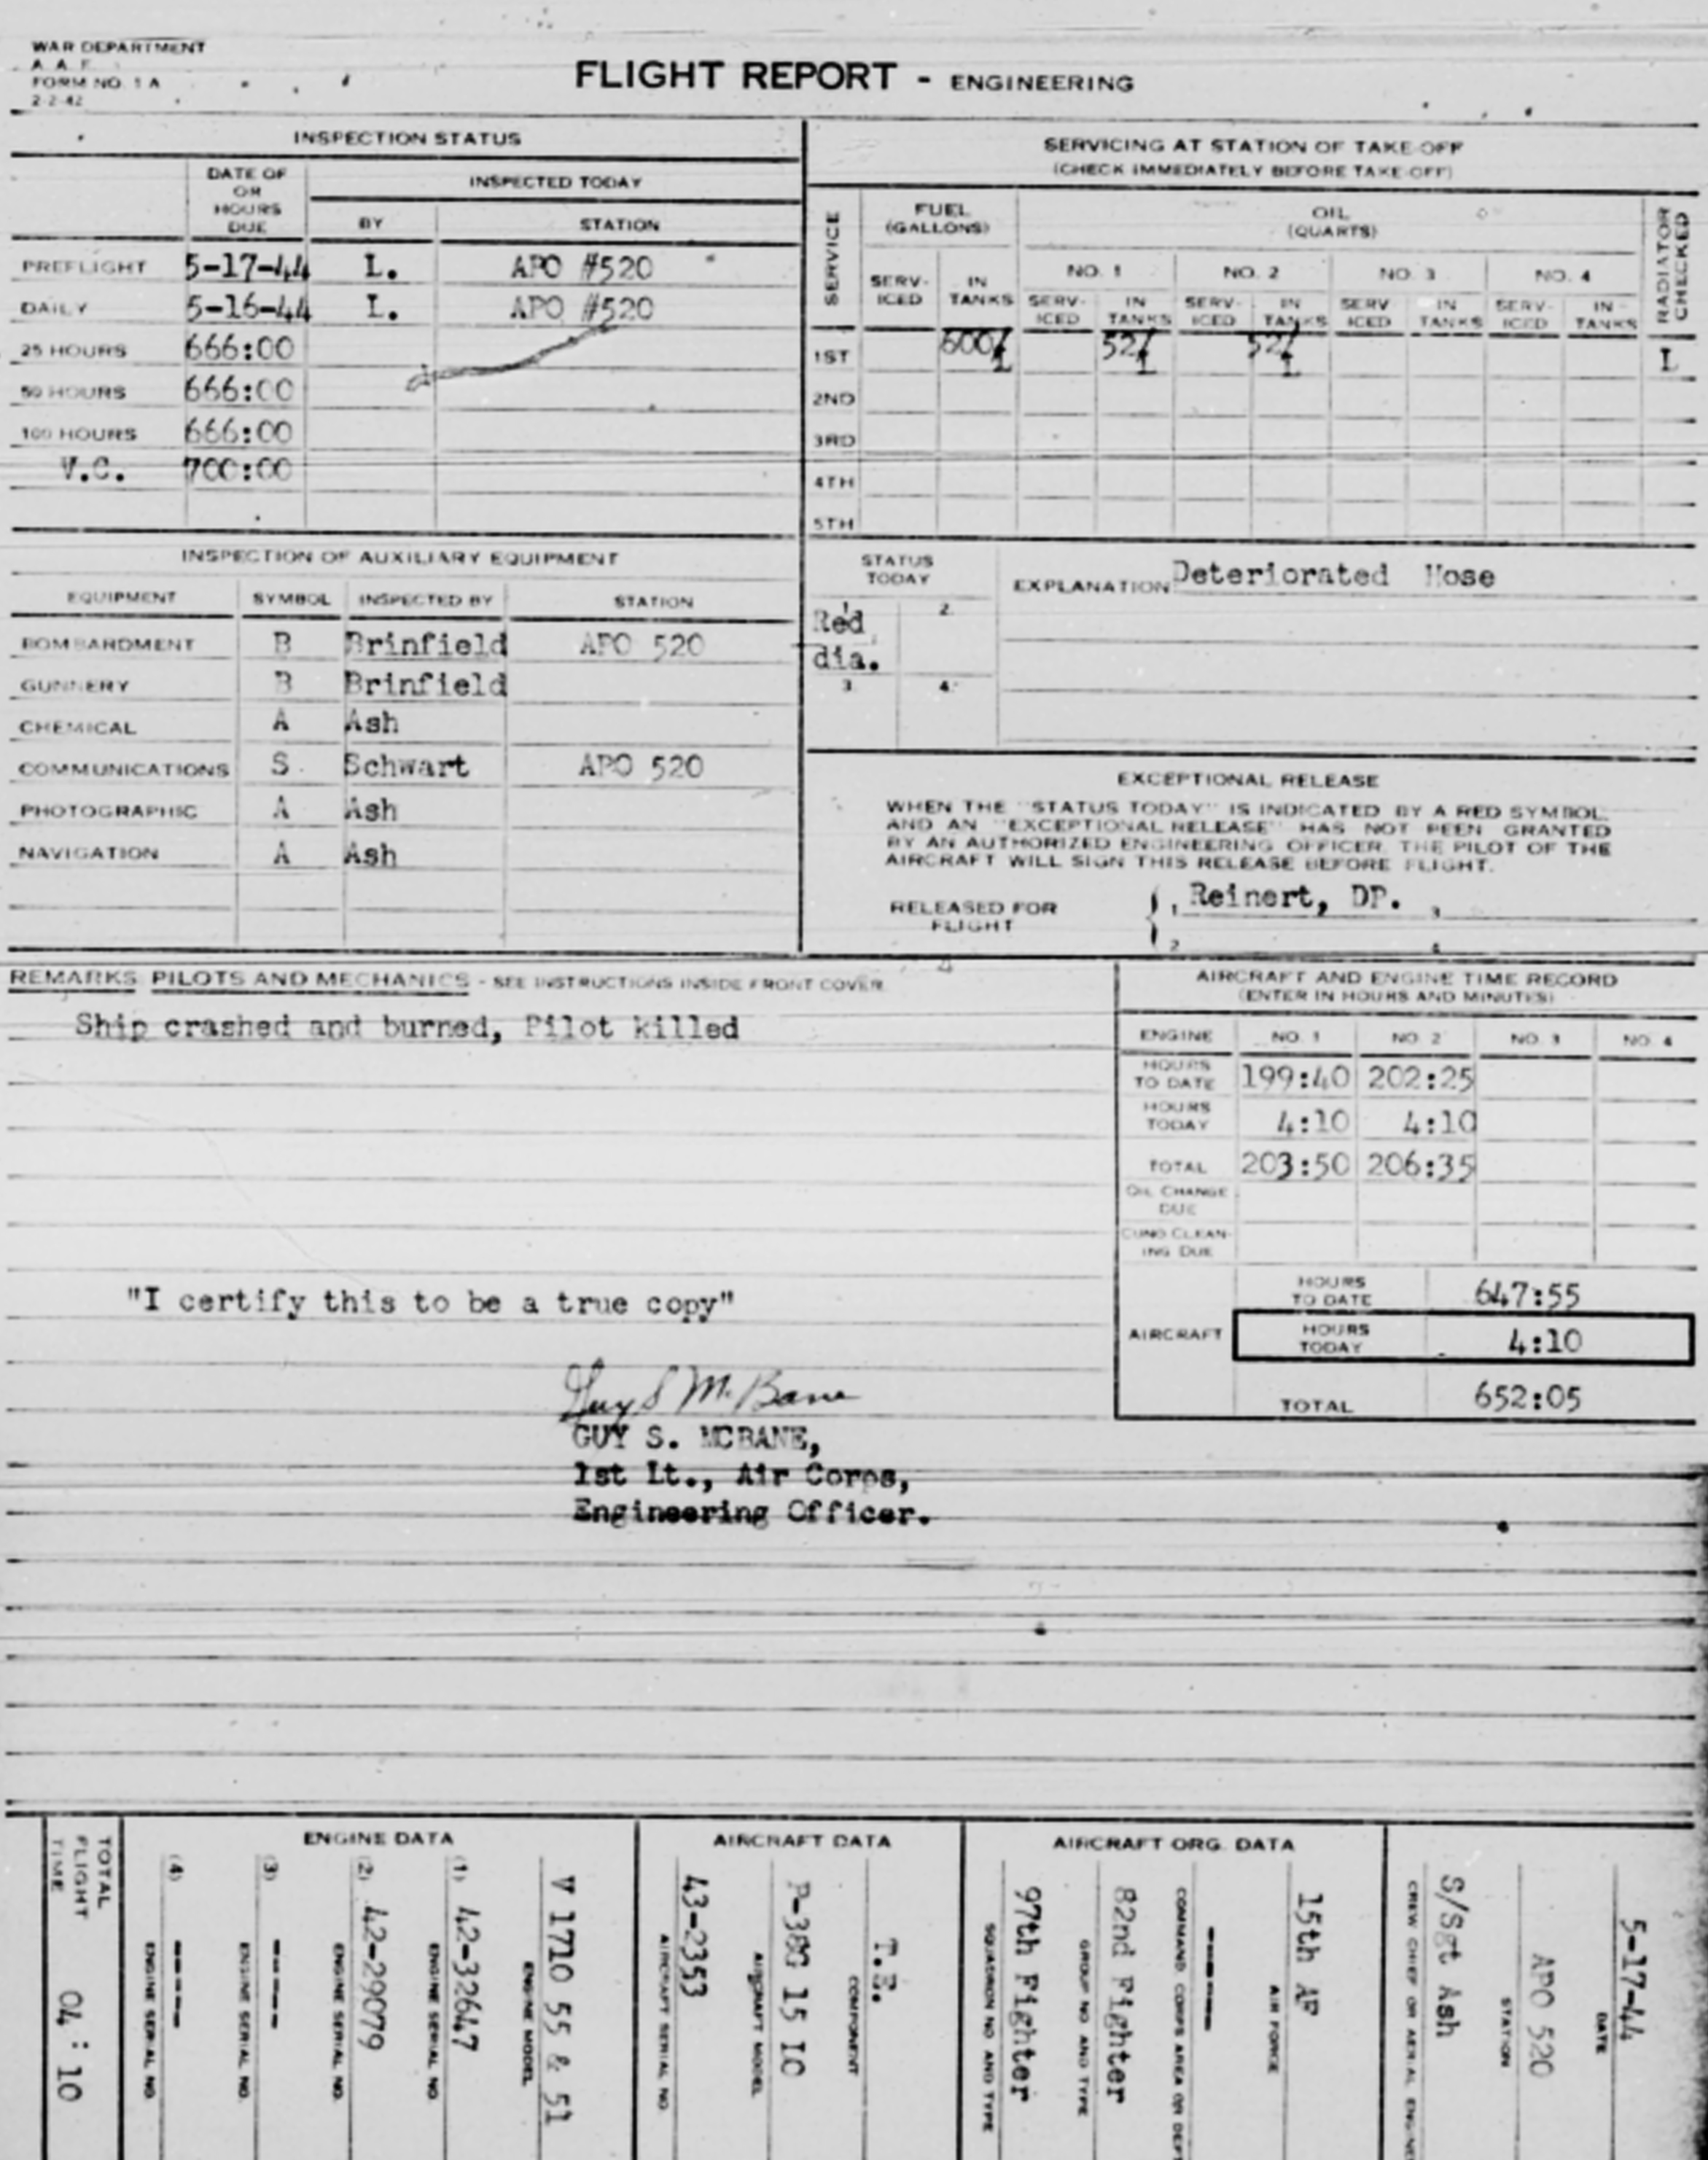 WAR DEPARTMENT
A. A. F.
FORM NO. 1 A
2-2-42
FLIGHT REPORT - ENGINEERING
INSPECTION STATUS
DATE OF OR HOURS DUE
INSPECTED TODAY
BY STATION
PREFLIGHT 5-17-44 L. APO #520
DAILY 5-16-44 L. APO #520
25 HOURS 666:00
50 HOURS 666:00
100 HOURS 666:00
V.C. 700:00
SERVICING AT STATION OF TAKE-OFF
(CHECK IMMEDIATELY BEFORE TAKE-OFF)
SERVICE
FUEL (GALLONS)
OIL (QUARTS)
RADIATOR CHECKED
NO. 1 NO. 2 NO. 3 NO. 4
SERV-ICED IN TANKS SERV-ICED IN TANKS SERV-ICED IN TANKS SERV ICED IN TANKS SERV-ICED IN TANKS
1ST 600/L 52/L 52/L L
2ND
3RD
4TH
5TH
INSPECTION OF AUXILIARY EQUIPMENT
EQUIPMENT SYMBOL INSPECTED BY STATION
BOMBARDMENT B Brinfield APO 520
GUNNERY B Brinfield
CHEMICAL A Ash
COMMUNICATIONS S. Schwart APO 520
PHOTOGRAPHIC A Ash
NAVIGATION A Ash
STATUS TODAY
1 2.
Red
dia.
3 4.
EXPLANATION Deteriorated Hose
EXCEPTIONAL RELEASE
WHEN THE "STATUS TODAY" IS INDICATED BY A RED SYMBOL
AND AN "EXCEPTIONAL RELEASE" HAS NOT BEEN GRANTED
BY AN AUTHORIZED ENGINEERING OFFICER, THE PILOT OF THE
AIRCRAFT WILL SIGN THIS RELEASE BEFORE FLIGHT.
RELEASED FOR FLIGHT
1 Reinert, DP. 3
2 4
REMARKS: PILOTS AND MECHANICS - SEE INSTRUCTIONS INSIDE FRONT COVER
Ship crashed and burned, Pilot killed
AIRCRAFT AND ENGINE TIME RECORD
(ENTER IN HOURS AND MINUTES)
ENGINE NO. 1 NO. 2 NO. 3 NO. 4
HOURS TO DATE 199:40 202:25
HOURS TODAY 4:10 4:10
TOTAL 203:50 206:35
OIL CHANGE DUE
CUNO CLEAN-ING DUE
AIRCRAFT
HOURS TO DATE 647:55
HOURS TODAY 4:10
TOTAL 652:05
"I certify this to be a true copy"
Guy S McBane
GUY S. MCBANE,
1st Lt., Air Corps,
Engineering Officer.
TOTAL FLIGHT TIME 04:10
ENGINE DATA
(4) ----- ENGINE SERIAL NO.
(3) ----- ENGINE SERIAL NO.
(2) 42-29079 ENGINE SERIAL NO.
(1) 42-32647 ENGINE SERIAL NO.
V 1710 55 & 51 ENGINE MODEL
AIRCRAFT DATA
43-2353 AIRCRAFT SERIAL NO.
P-38G 15 LO AIRCRAFT MODEL
COMPONENT
AIRCRAFT ORG. DATA
97th Fighter SQUADRON NO AND TYPE
82nd Fighter GROUP NO AND TYPE
------ COMMAND CORPS AREA OR DEPT
15th AF AIR FORCE
S/Sgt Ash
CREW CHIEF OR AERIAL
APO 520 STATION
5-17-44 DATE